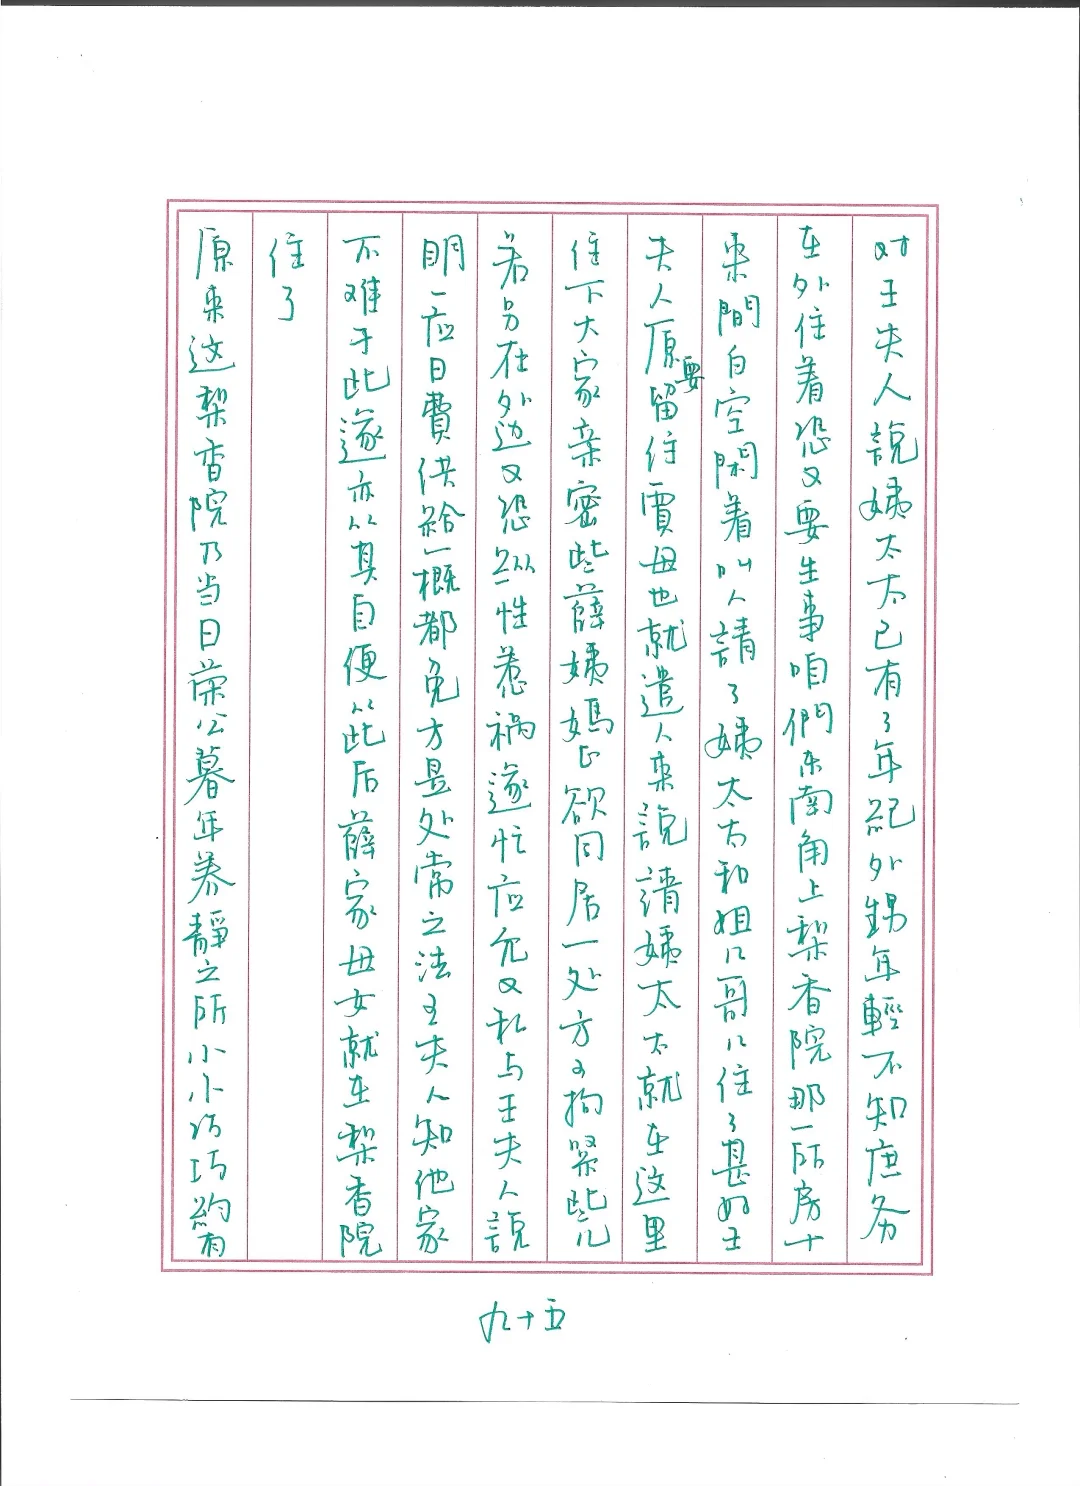 对王夫人說姨太太已有了年紀外甥年輕不知庶务
在外住着恐又要生事咱們东南角上梨香院那一所房十
来間白空閑着叫人請了姨太太和姐儿哥儿住了甚好王
夫人原要留住賈母也就遣人来說請姨太太就在这里
住下大家亲密些薛姨媽正欲同居一处方可拘緊些儿
若另在外边又恐纵性惹禍遂忙应允又私与王夫人說
明一应日費供給一概都免方是处常之法王夫人知他家
不难于此遂亦从其自便从此后薛家母女就在梨香院
住了
原来这梨香院乃当日荣公暮年养靜之所小小巧巧約有
九十五